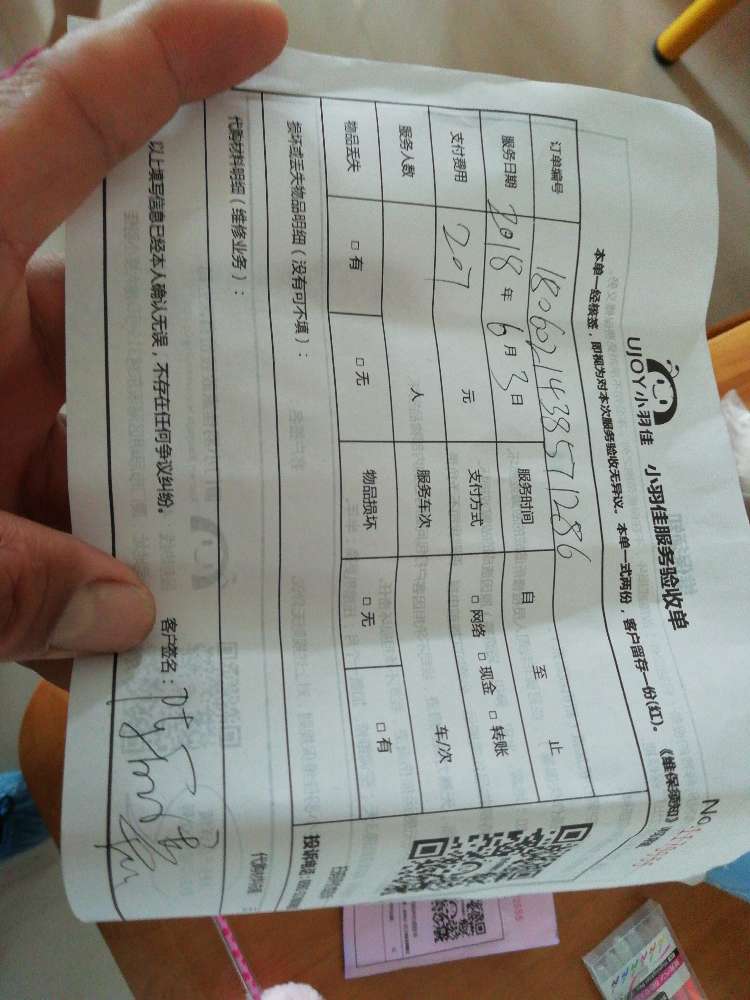 UJOY小羽佳 小羽佳服务验收单
No
本单一经核签，即视为对本次服务验收无异议。本单一式两份，客户留存一份(红)。《维保须知》
订单编号 1806021438571286
服务日期 2018年6月3日 服务时间 自 至 止
支付费用 207 元 支付方式 □网络 □现金 □转账
服务人数 人 服务车次 车/次
物品丢失 □有 □无 物品损坏 □无 □有
损坏或丢失物品明细（没有可不填）：
投诉电话：
代购材料明细（维修业务）：
以上填写信息已经本人确认无误，不存在任何争议纠纷。 客户签名：